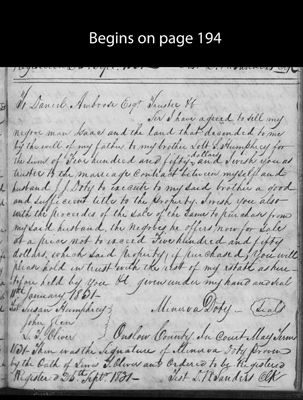 Begins on page 194
To Daniel Ambrose Esqr. Trustee &c
Sir I have agreed to sell my
negroe man Isaac and the land that descended to me
by the will of my father to my brother Lott L Humphrey for
the Sum of Five hundred and fifty dollars and I wish you as
trustee to the marriage Contract between myself and
husband J J Doty to execute to my said brother a good
and sufficient title to the Property. I wish you also
with the Proceeds of the Sale of the Same to purchase from
my said husband, the Negroe he offers now for Sale
at a price not to exceed Five hundred and fifty
dollars, which said Property if purchased, You will
please hold in trust with the rest of my estate as here-
tofore held by you &c given under my hand and Seal
11th January 1831.
Susan Humphrey Minerva Doty Seal
John
L. T. Oliver Onslow County In Court May Term
1831. Then was the Signature of Minerva Doty proven
by the Oath of Lewis T. Oliver and Ordered to be Registered
Registered 26th Sept. 1831 Test Sanders Clk